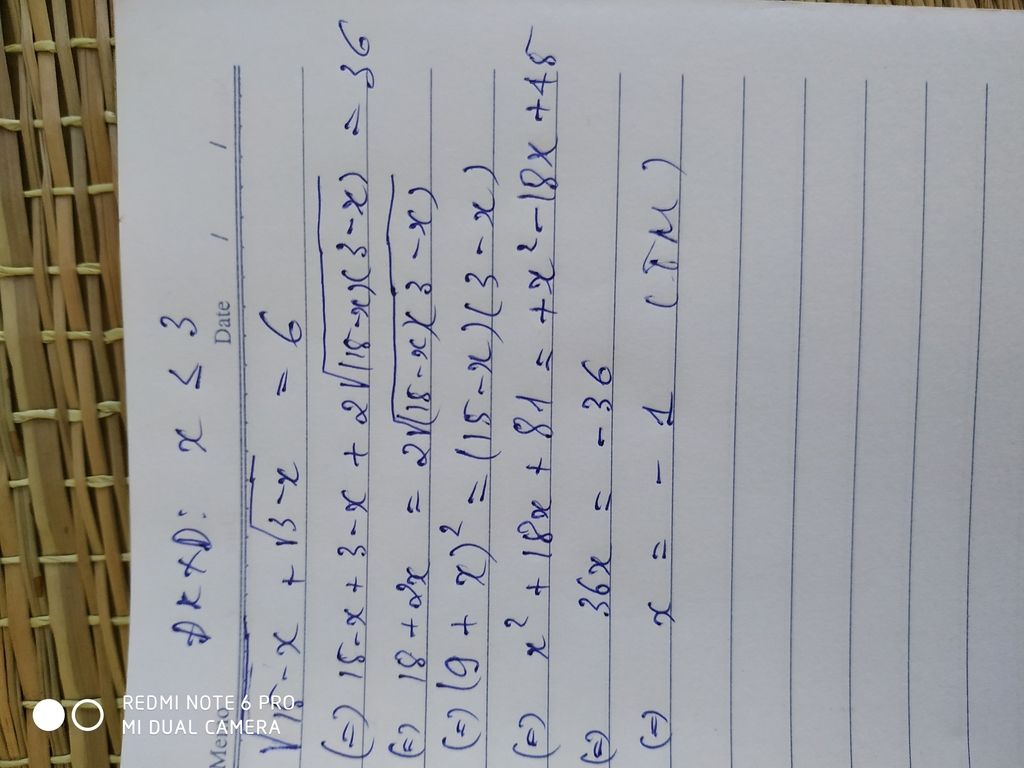 ĐKXĐ: x ≤ 3
Date / /
√15-x + √3-x = 6
(=) 15-x+3-x + 2√(15-x)(3-x) = 36
(=) 18+2x = 2√(15-x)(3-x)
(=) (9+x)² = (15-x)(3-x)
(=) x² + 18x + 81 = +x² - 18x + 45
(=) 36x = -36
(=) x = -1 (TM)
REDMI NOTE 6 PRO
MI DUAL CAMERA